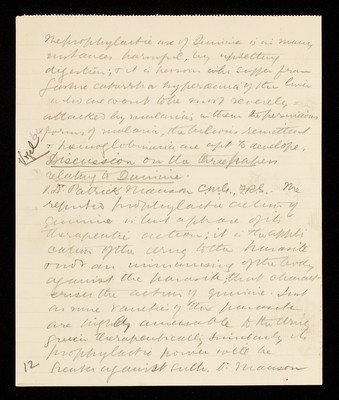 The prophylactic use of Quinine is in many
instances harmful, by upsetting
digestion; & it is persons who suffer from
gastric catarrh & hyperaemia of the liver
who are wont to be most severely
attacked by malaria; in them the pernicious
forms of malaria, the bilious remittent
& haemoglobinuria are apt to develope.
Discussion on the three papers
relating to Quinine.
1 Dr Patrick Manson C.M.G., F.R.S. The
reputed prophylactic action of
quinine is but a phase of its
therapeutic action; it is the appli
cation of the drug to the parasite
& not an immunising of the body
against the parasite that
the action of quinine. Just
as some varieties of the parasite
are highly amenable to the drug
given therapeutically similarly its
prophylactic power will be
greater against such. Dr Manson
12